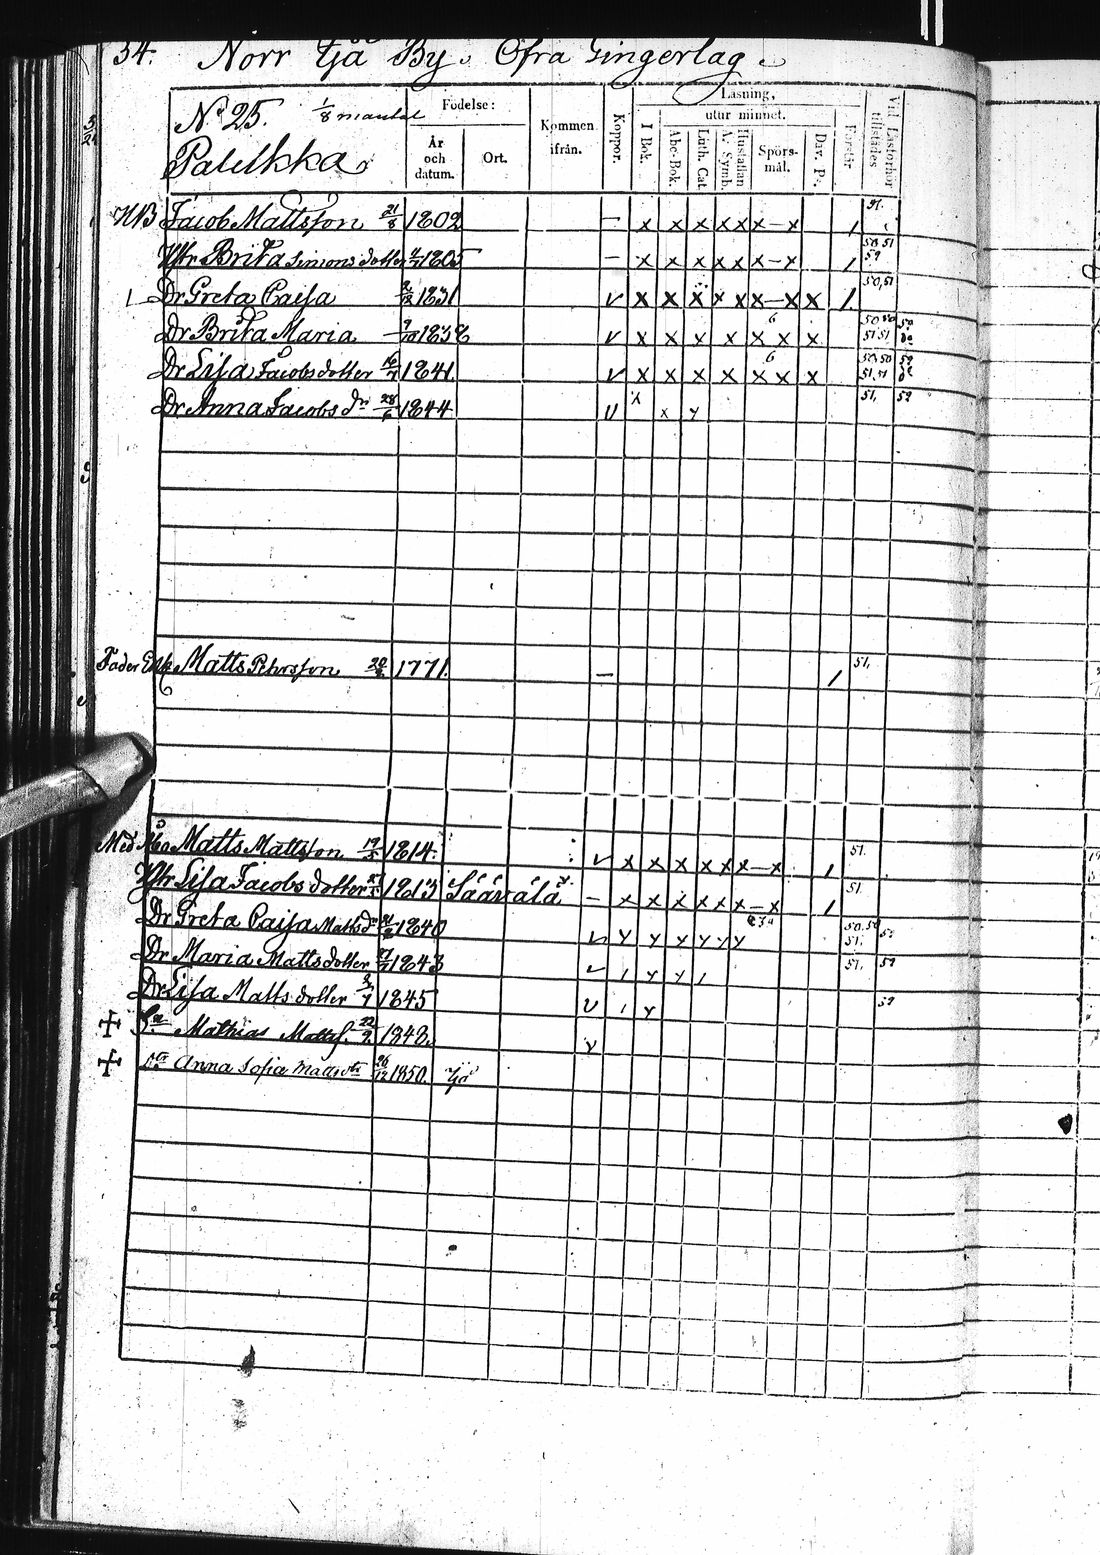 34. Norr Ijå By. Öfra Gingerlag.
No 25. 1/8 mantal
Födelse:
År och datum.
Ort.
Kommen ifrån.
Koppor.
Läsning,
utur minnet.
I Bok.
Abc-Bok.
Luth. Cat.
A. Symb.
Hustaflan
Spörs-mål.
Dav. Ps.
Förstår
Vid Läsförhör tillstädes
HB Jacob Mattsson 21/8 1802 — x x x x x x — x 1 51.
Hr Brita Simonsdotter 1805 — x x x x x x — x 1 50 51 52
Dr Greta Caisa 1831 v x x x x x x — x x 1 50,51
Dr Brita Maria 1838 v x x x x x x x 6 50 50 51 51 52
Dr Lisa Jacobsdotter 16/7 1841 v x x x x x x x 6 50 50 51,51 52
Dr Anna Jacobs dr 28/6 1844 v x x y 51, 52
Fader Matts Pehrsson 1771. — 1 51,
Matts Mattsson 19/5 1814. v x x x x x x — x 1 51.
Hr Lisa Jacobsdotter 1813 Säävälä — x x x x x x — x 1 51.
Dr Greta Caisa Matts dr 1840 v y y x y y y 50.50 51. 52
Dr Maria Mattsdotter 1843 v 1 y y 1 51. 52
Dr Lisa Mattsdotter 1845 v 1 y 52
+ Mathias Matts. 1848. y
+ Anna Sofia 26/12 1850. Ijå